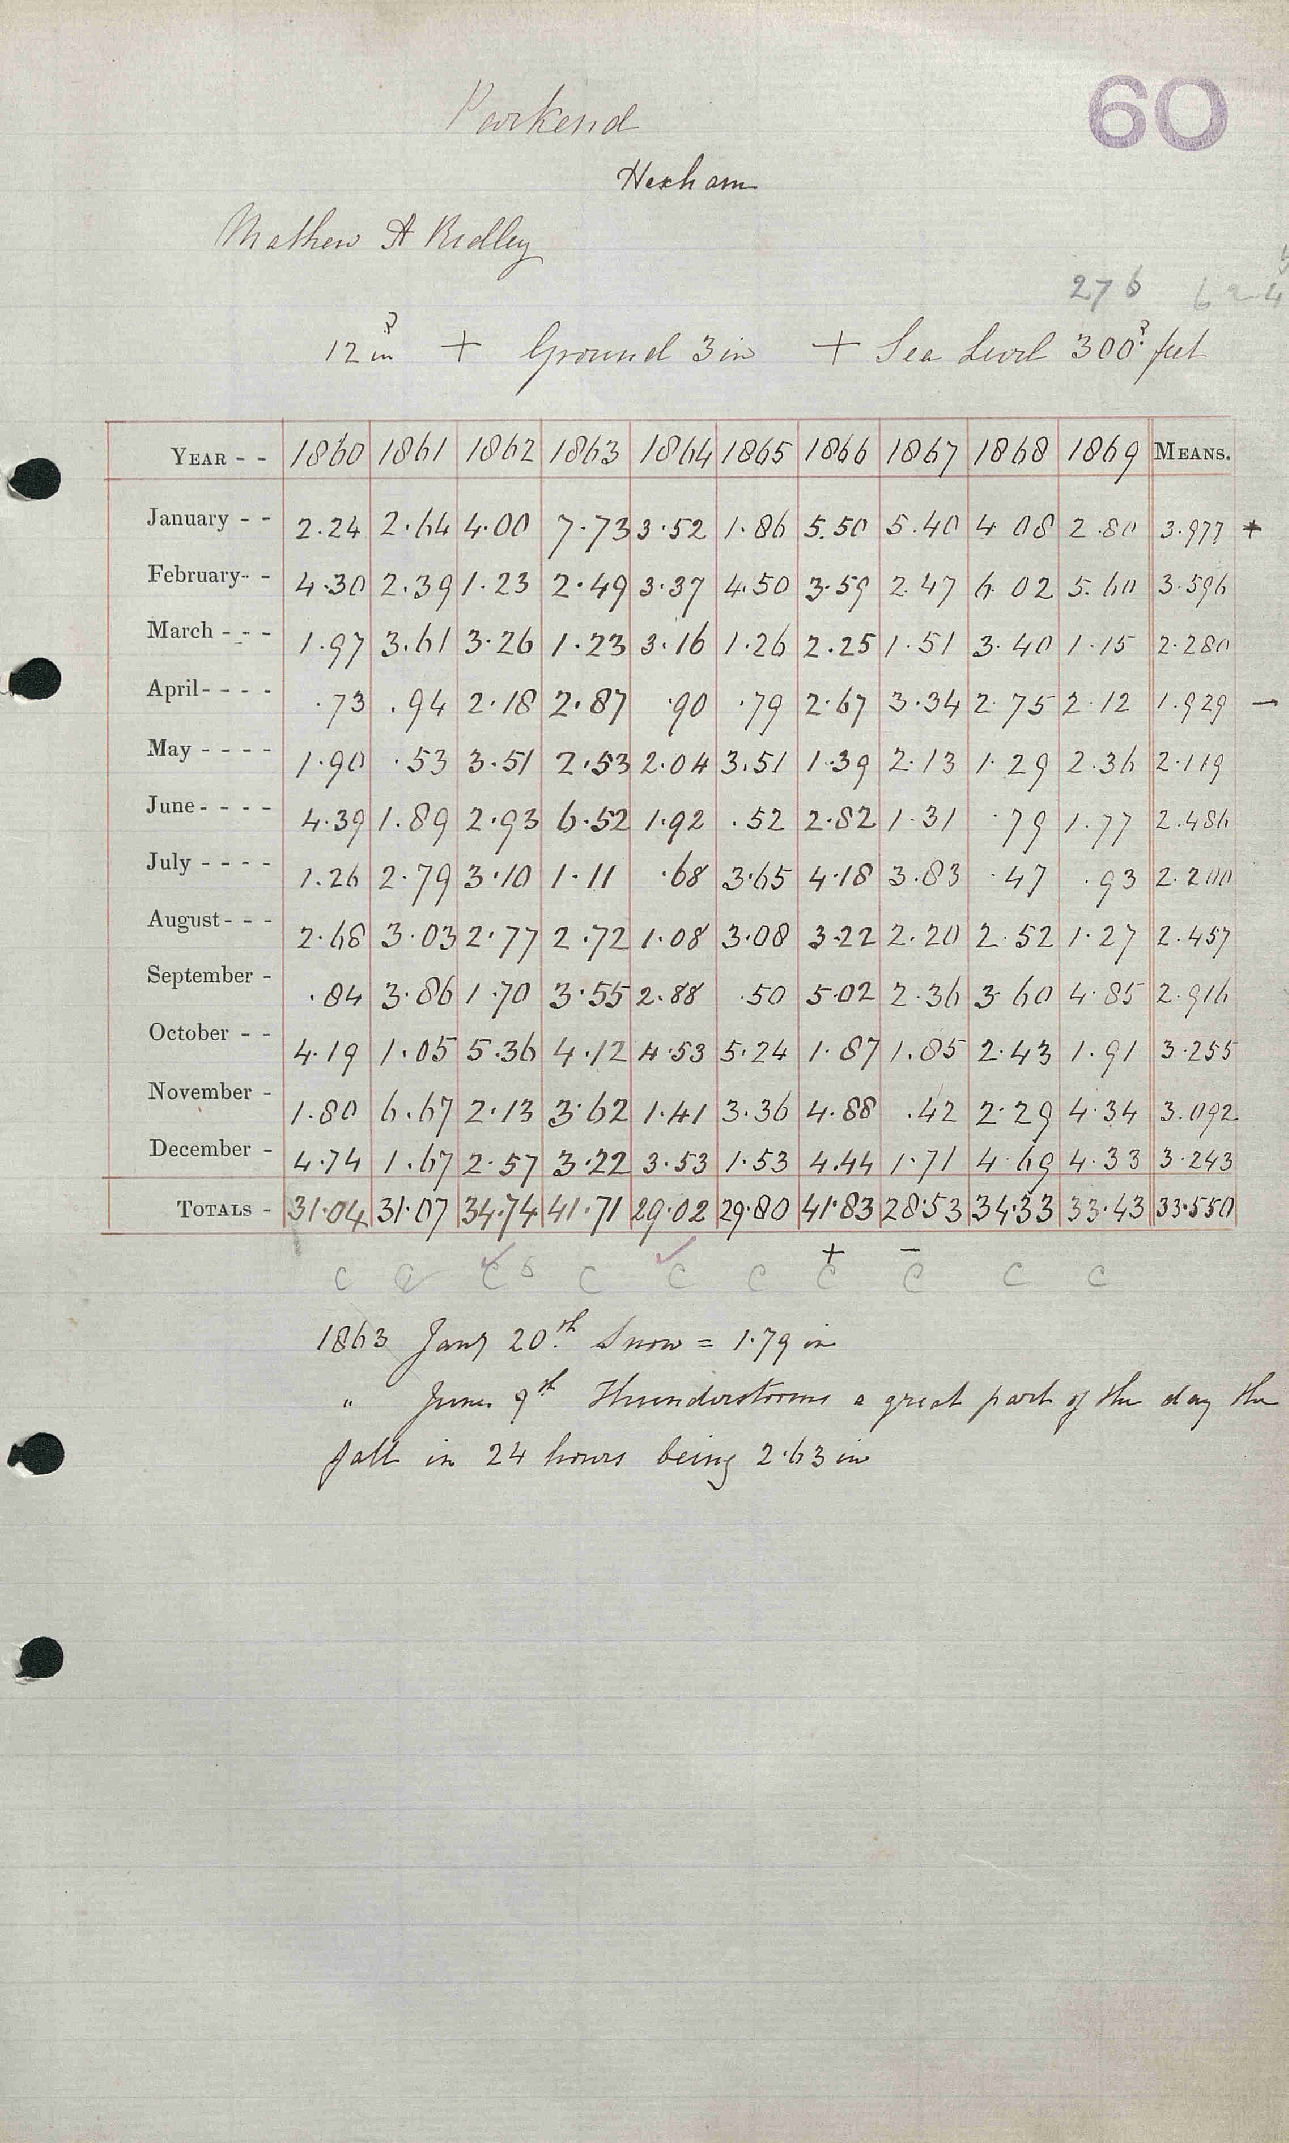 60
Parkend
Hexham
Mathew A Ridley
276
12 in ? + Ground 3 in + Sea Level 300? feet
YEAR - - 1860 1861 1862 1863 1864 1865 1866 1867 1868 1869 MEANS.
January - - 2.24 2.64 4.00 7.73 3.52 1.86 5.50 5.40 4 08 2.80 3.977 +
February- - 4.30 2.39 1.23 2.49 3.37 4.50 3.59 2.47 6 02 5.60 3.596
March - - - 1.97 3.61 3.26 1.23 3.16 1.26 2.25 1.51 3.40 1.15 2.280
April - - - - .73 .94 2.18 2.87 .90 .79 2.67 3.34 2.75 2.12 1.929 -
May - - - - 1.90 .53 3.51 2.53 2.04 3.51 1.39 2.13 1.29 2.36 2.119
June - - - - 4.39 1.89 2.93 6.52 1.92 .52 2.82 1.31 .79 1.77 2.486
July - - - - 1.26 2.79 3.10 1.11 .68 3.65 4.18 3.83 .47 .93 2.200
August - - - 2.68 3.03 2.77 2.72 1.08 3.08 3.22 2.20 2.52 1.27 2.457
September - .84 3.86 1.70 3.55 2.88 .50 5.02 2.36 3.60 4.85 2.916
October - - 4.19 1.05 5.36 4.12 4.53 5.24 1.87 1.85 2.43 1.91 3.255
November - 1.80 6.67 2.13 3.62 1.41 3.36 4.88 .42 2.29 4.34 3.092
December - 4.74 1.67 2.57 3.22 3.53 1.53 4.44 1.71 4.69 4.33 3.243
TOTALS - 31.04 31.07 34.74 41.71 29.02 29.80 41.83 28.53 34.33 33.43 33.550
+ -
C C C C C C C C C
1863 Jany 20th Snow = 1.79 in
" June 9th Thunderstorms a great part of the day the
fall in 24 hours being 2.63 in